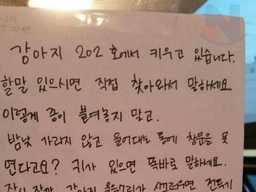 강아지 202호에서 키우고 있습니다.
할말 있으시면 직접 찾아와서 말하세요.
이렇게 종이 붙여놓지 말고.
밤낮 가리지 않고 들어대는 통에 창문을 못
연다고요? 귀가 있으면 똑바로 말하세요.
강아지